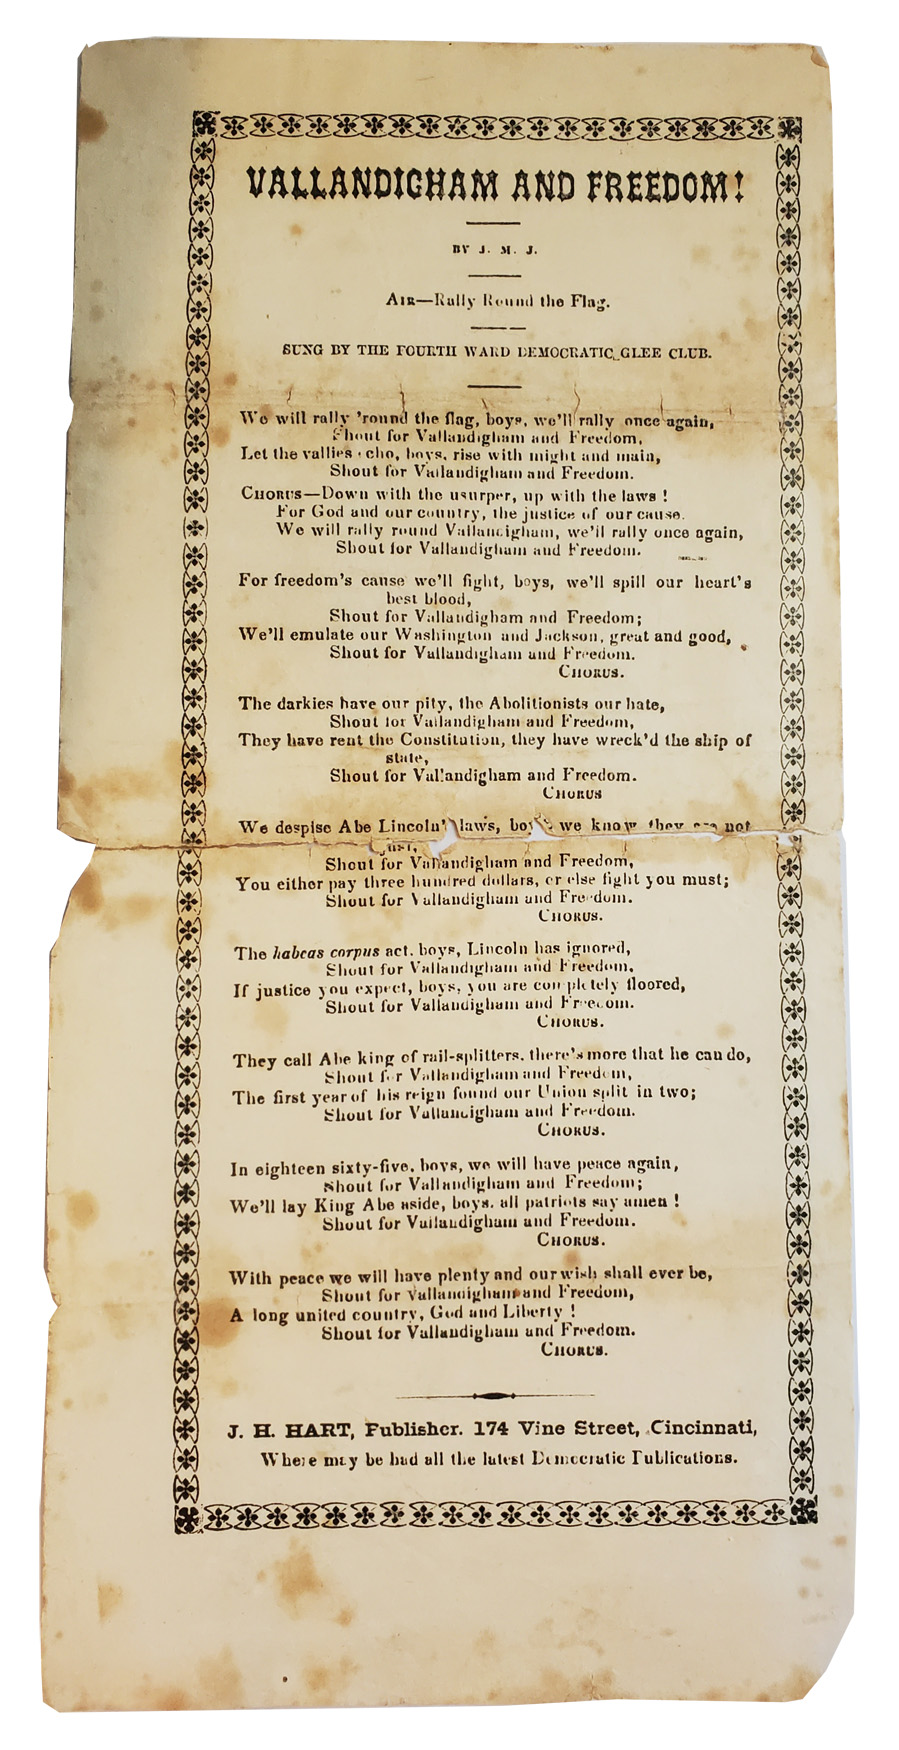 VALLANDIGHAM AND FREEDOM!
BY J. M. J.
AIR—Rally Round the Flag.
SUNG BY THE FOURTH WARD DEMOCRATIC GLEE CLUB.
We will rally 'round the flag, boys, we'll rally once again,
Shout for Vallandigham and Freedom,
Let the vallies echo, boys, rise with might and main,
Shout for Vallandigham and Freedom.
CHORUS—Down with the usurper, up with the laws !
For God and our country, the justice of our cause.
We will rally round Vallandigham, we'll rally once again,
Shout for Vallandigham and Freedom.
For freedom's cause we'll fight, boys, we'll spill our heart's
best blood,
Shout for Vallandigham and Freedom;
We'll emulate our Washington and Jackson, great and good,
Shout for Vallandigham and Freedom.
CHORUS.
The darkies have our pity, the Abolitionists our hate,
Shout for Vallandigham and Freedom,
They have rent the Constitution, they have wreck'd the ship of
state,
Shout for Vallandigham and Freedom.
CHORUS
We despise Abe Lincoln's laws, boys, we know they are not
just,
Shout for Vallandigham and Freedom,
You either pay three hundred dollars, or else fight you must;
Shout for Vallandigham and Freedom.
CHORUS.
The habeas corpus act, boys, Lincoln has ignored,
Shout for Vallandigham and Freedom,
If justice you expect, boys, you are completely floored,
Shout for Vallandigham and Freedom.
CHORUS.
They call Abe king of rail-splitters, there's more that he can do,
Shout for Vallandigham and Freedom,
The first year of his reign found our Union split in two;
Shout for Vallandigham and Freedom.
CHORUS.
In eighteen sixty-five, boys, we will have peace again,
Shout for Vallandigham and Freedom;
We'll lay King Abe aside, boys, all patriots say amen !
Shout for Vallandigham and Freedom.
CHORUS.
With peace we will have plenty and our wish shall ever be,
Shout for Vallandigham and Freedom,
A long united country, God and Liberty !
Shout for Vallandigham and Freedom.
CHORUS.
J. H. HART, Publisher. 174 Vine Street, Cincinnati,
Where may be had all the latest Democratic Publications.